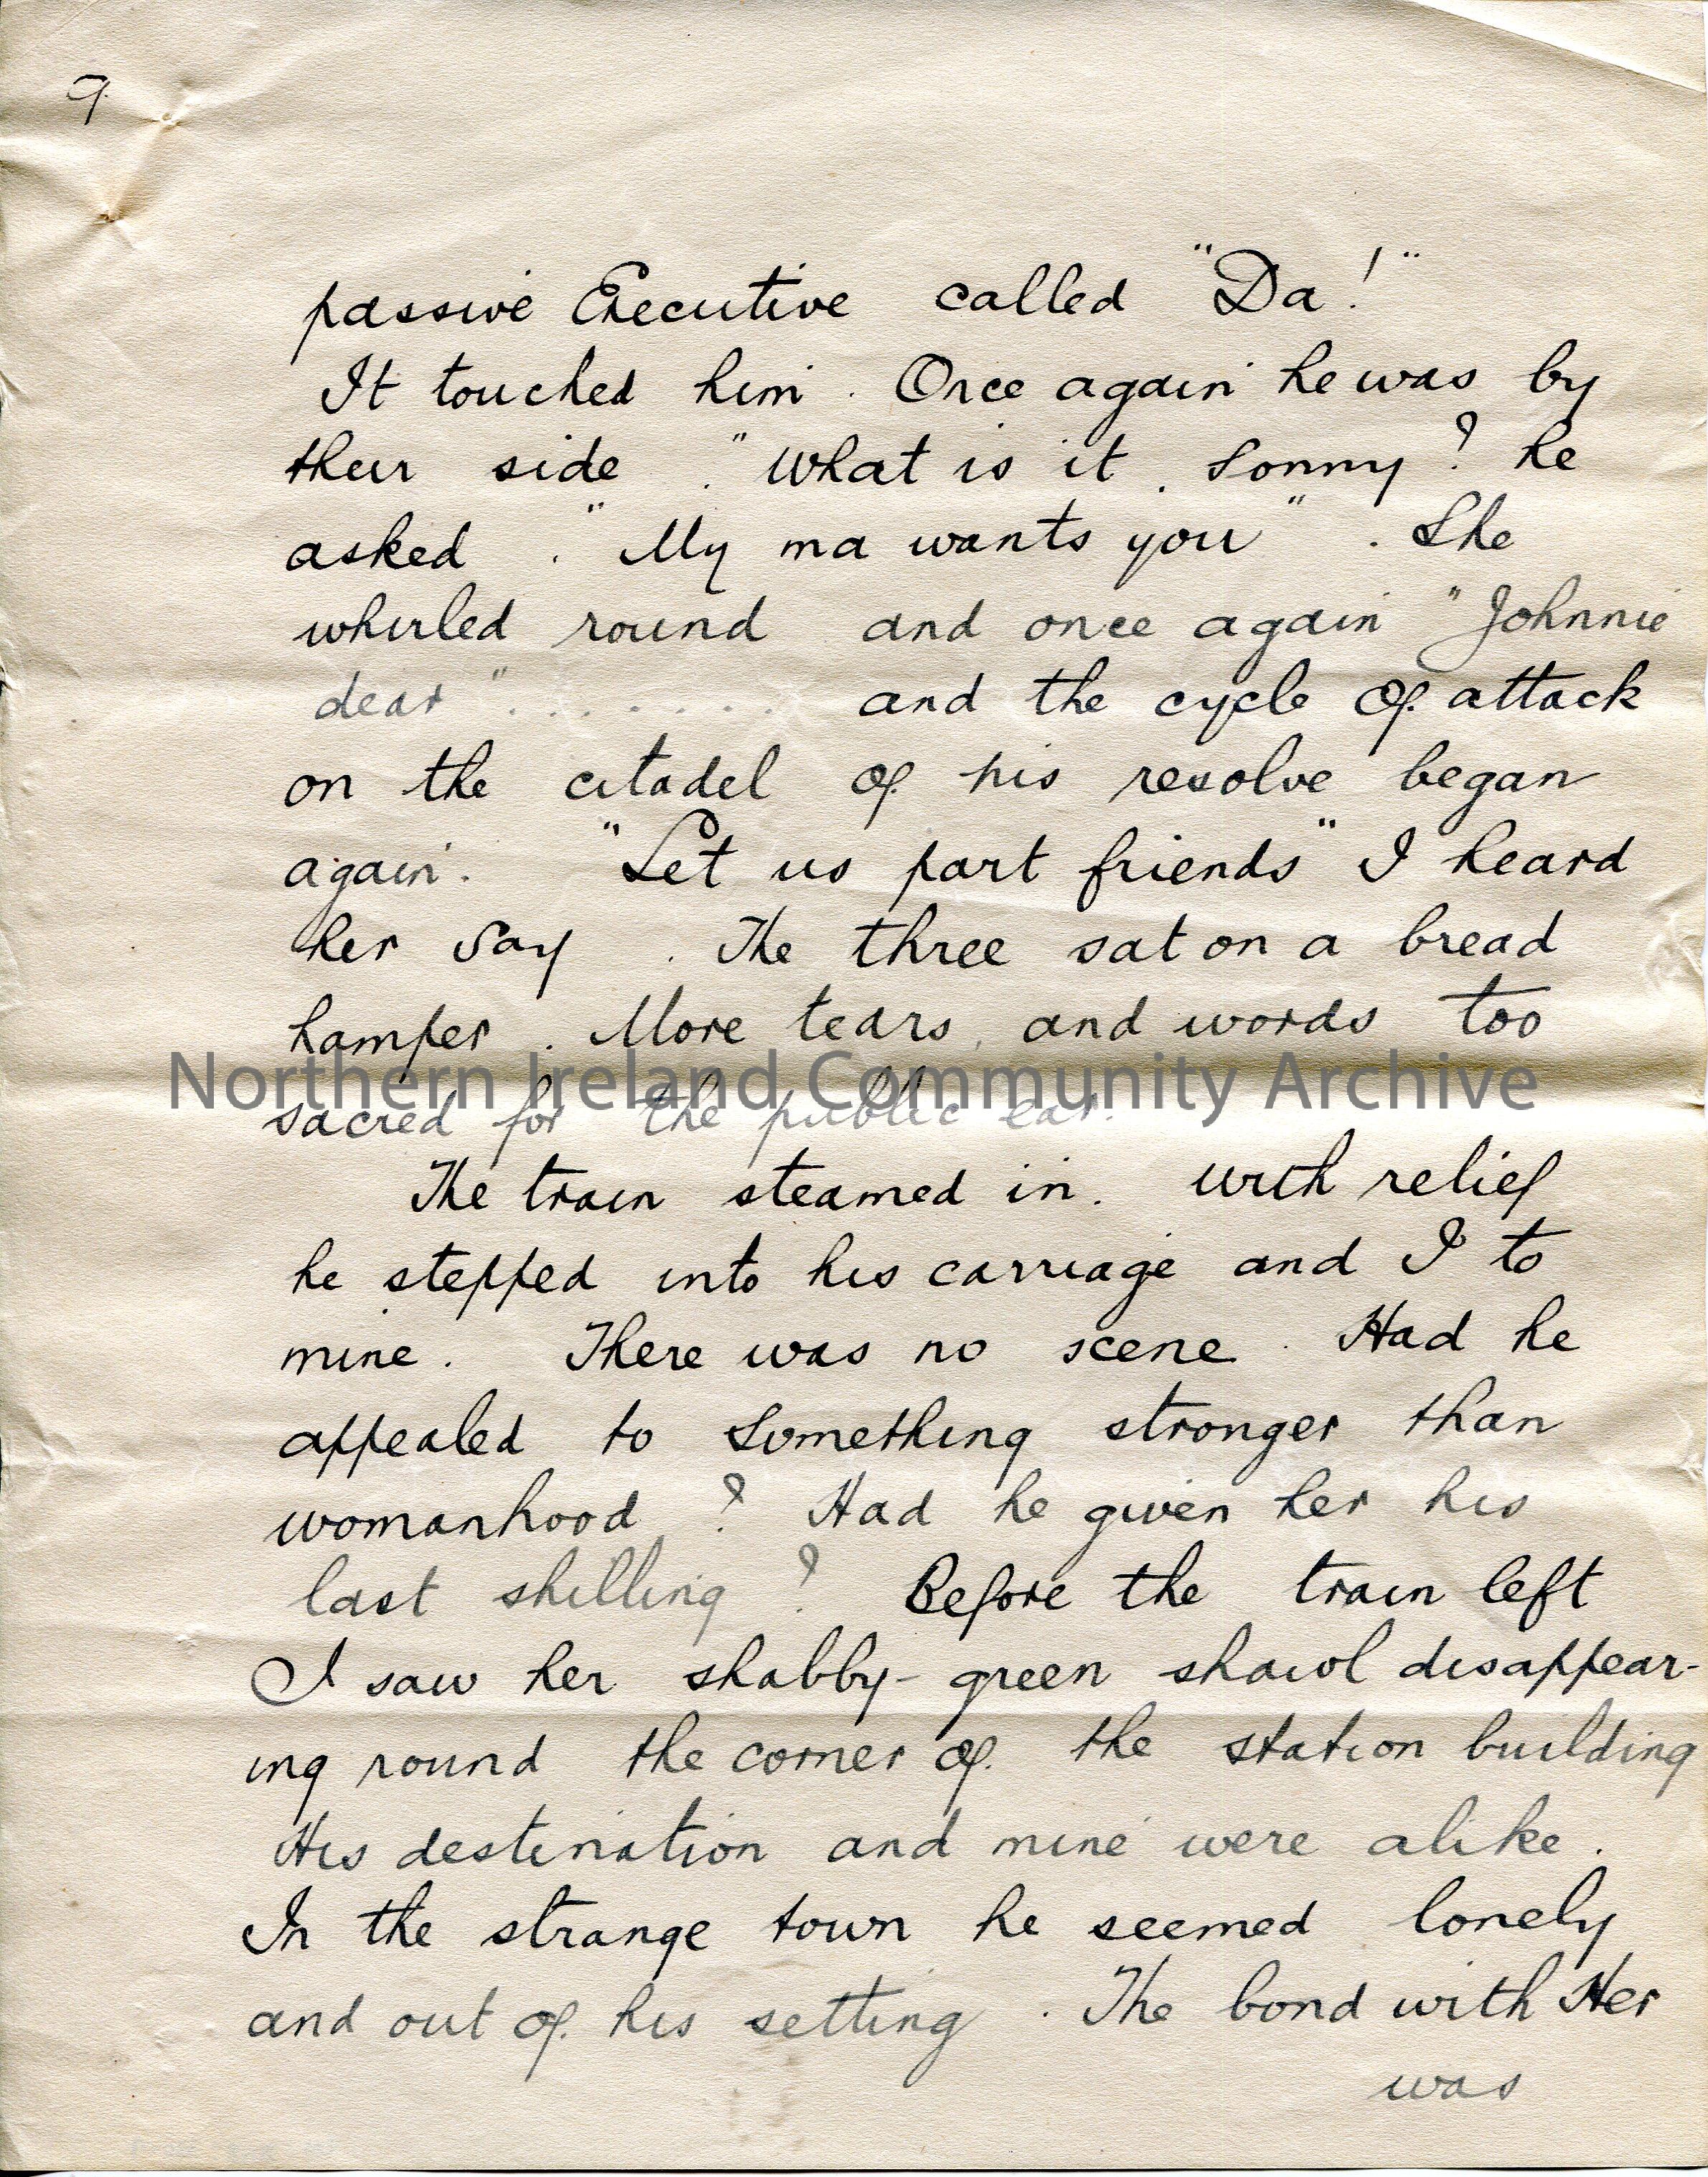 9
passive Executive called "Da!"
It touched him. Once again he was by
their side. "What is it, Sonny? he
asked. "My ma wants you". She
whirled round and once again "Johnnie
dear"........ and the cycle of attack
on the citadel of his resolve began
again. "Let us part friends" I heard
her say. The three sat on a bread
hamper. More tears, and words too
Northern Ireland Community Archive
sacred for the public ear.
The train steamed in. With relief
he stepped into his carriage and I to
mine. There was no scene. Had he
appealed to something stronger than
womanhood? Had he given her his
last shilling? Before the train left
I saw her shabby-green shawl disappear-
ing round the corner of the station building
His destination and mine were alike.
In the strange town he seemed lonely
and out of his setting. The bond with Her
was